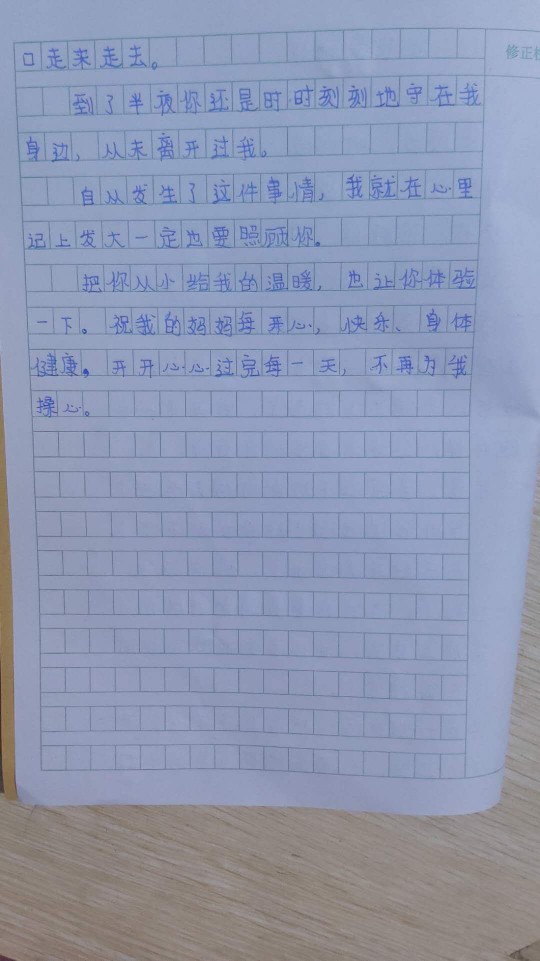 口走来走去。
到了半被你还是时时刻刻地守在我
身边，从未离开过我。
自从发生了这件事情，我就在心里
记上发大一定也要照顾你。
把你从小给我的温暖，也让你体验
一下。祝我的妈妈每天开心，快乐、身体
健康。开开心心过完每一天，不再为我
操心。
修正